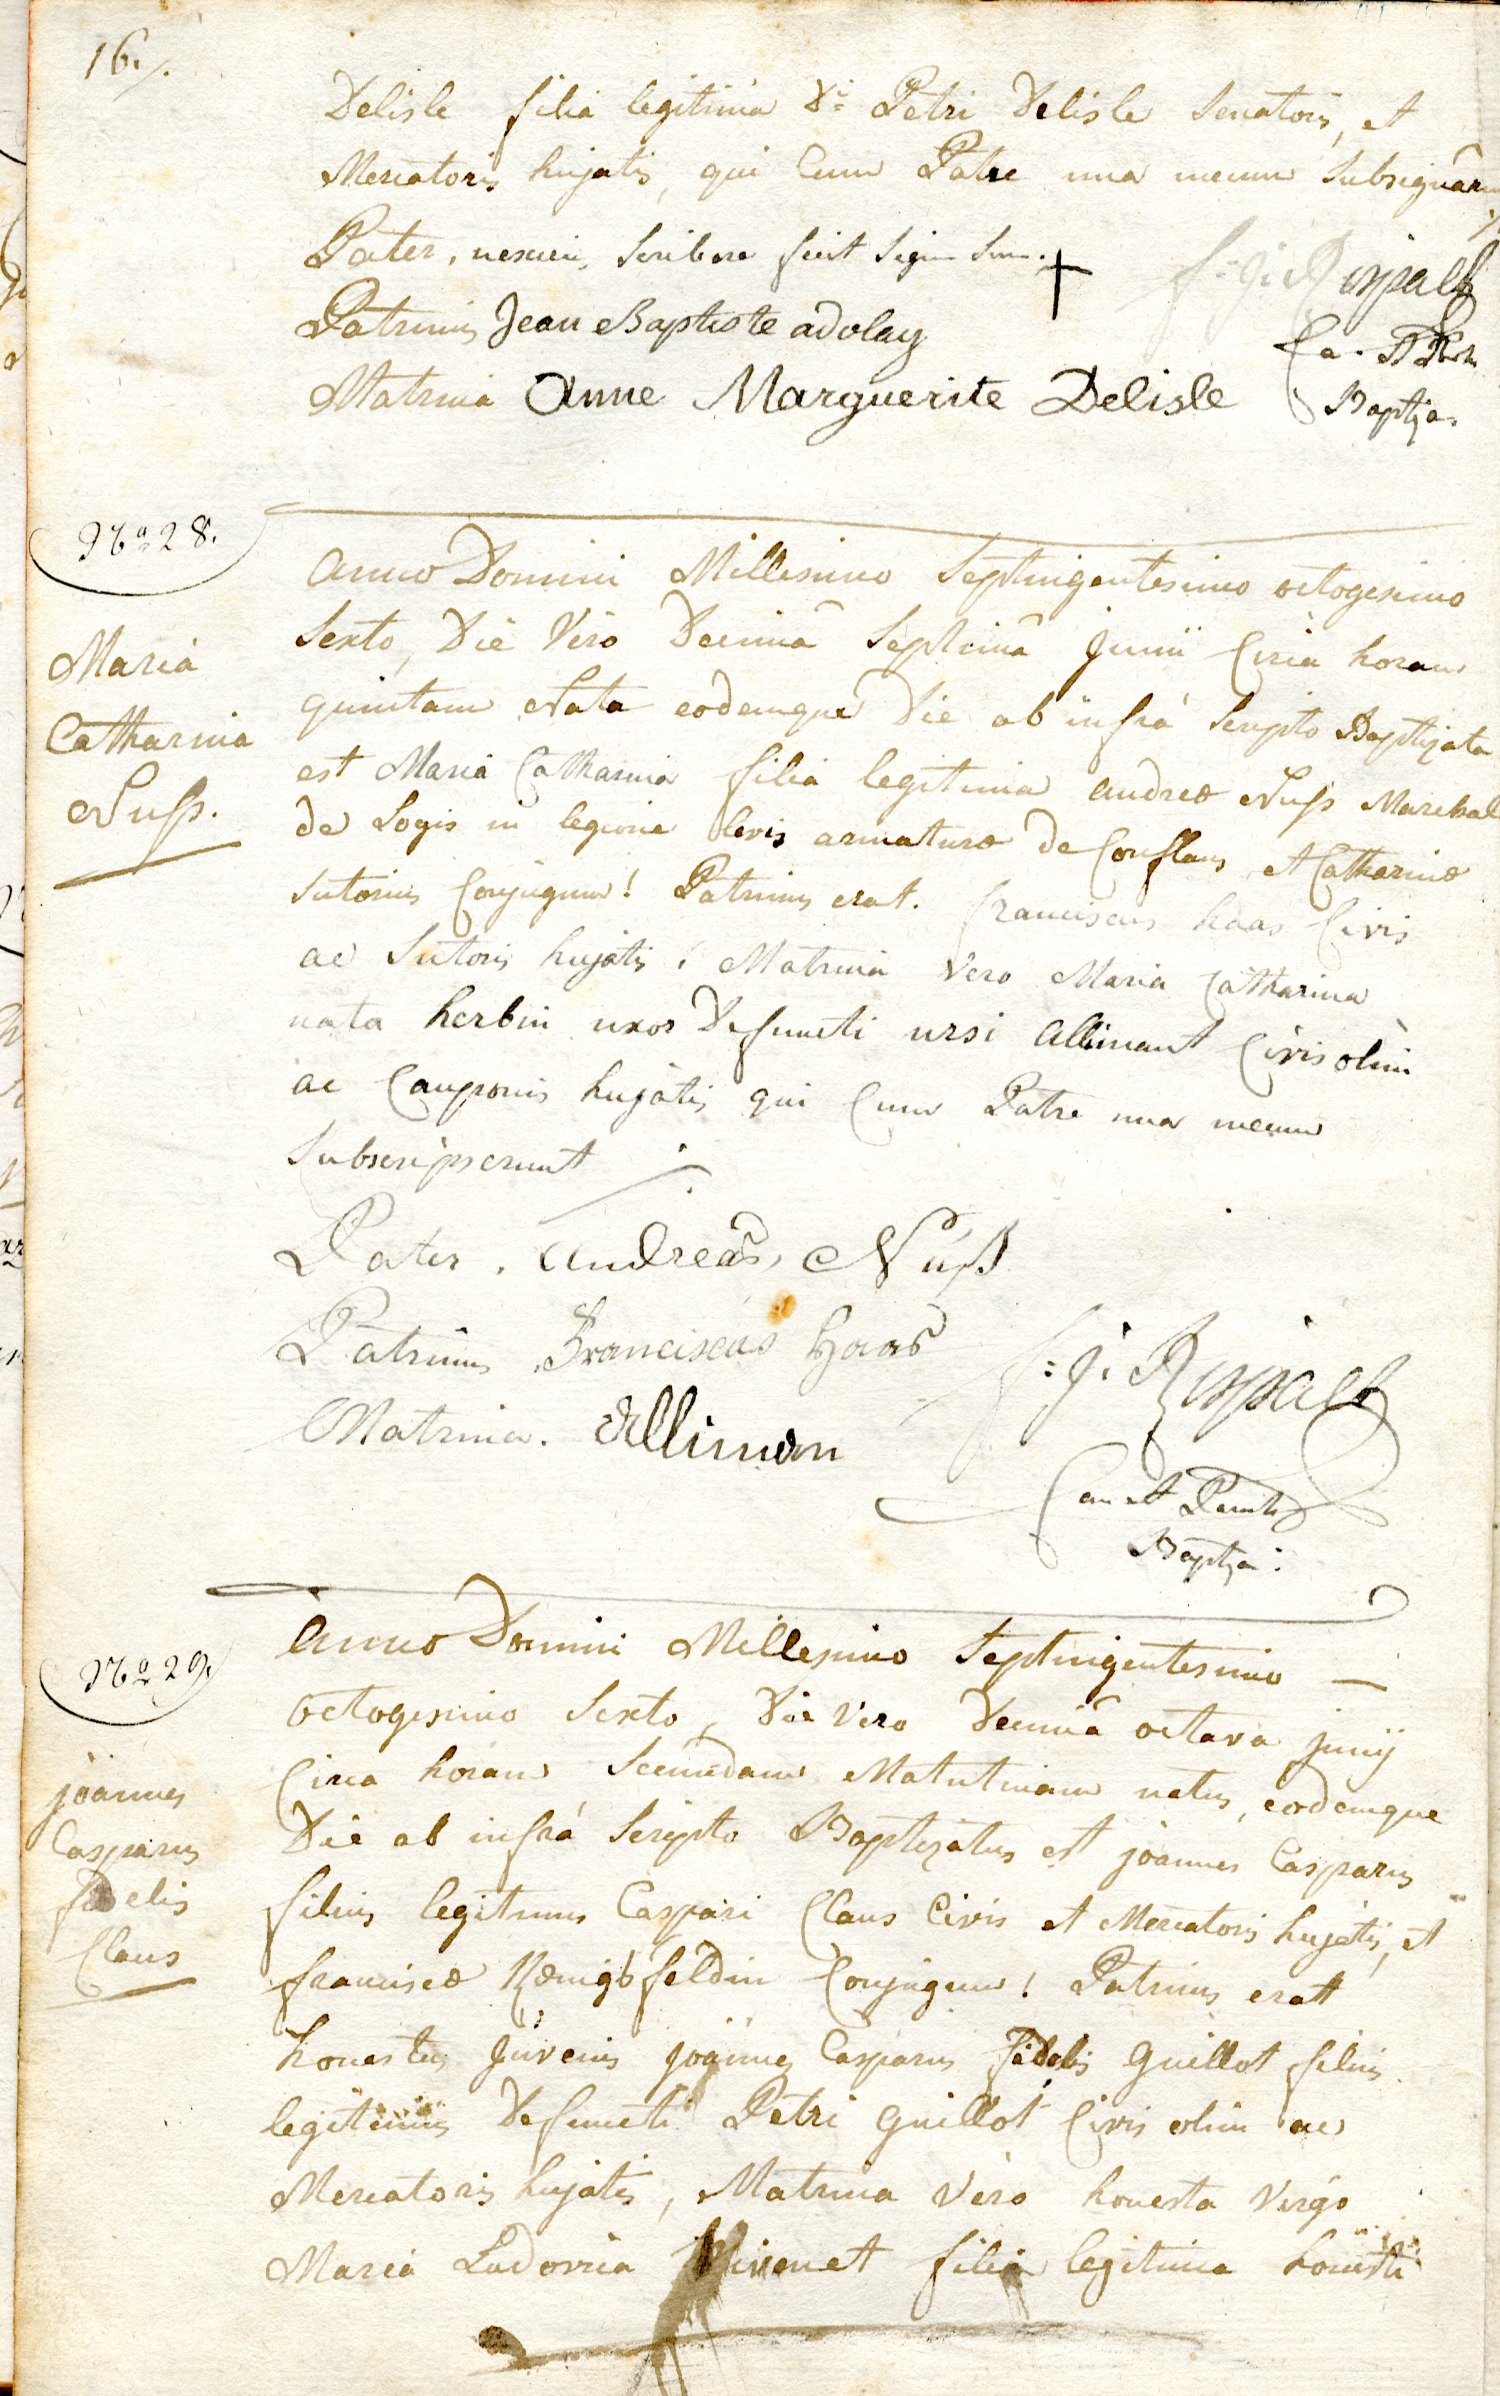 16./.
Delisle filia legitima D.i Petri Delisle Senatoris, et
Mercatoris hujatis, qui Cum Patre una mecum Subsignârunt
Pater, nesciens Scribere fecit Signum Suum. +
Patrinus Jean Baptiste adolay
Matrina Anne Marguerite Delisle
Baptiza.
No 28.
Maria
Catharina
Nuss.
Anno Domini Millesimo Septingentesimo octogesimo
Sexto, Die Vero Decimâ Septimâ Junii Circa horam
quintam Nata eodemque Die ab infrà Scripto Baptizata
est Maria Catharina filia legitima andreæ Nuss Marchal
de Logis in legione levis armaturæ de Conflans, et Catharinæ
Sutorius Conjugum! Patrinus erat. franciscus haas Civis
ac Sutoris hujatis! Matrina Vero Maria Catharina
nata herbin uxor Defuncti ursi allimant Civis olim
ac Cauponis hujatis qui Cum Patre una mecum
Subscripserunt ./.
Pater. Andreas Nuss
Patrinus Franciscus Haas
Matrina. Allimon
Can et Paroch
Baptiza:
No 29.
joannes
Casparus
fidelis
Claus
Anno Domini Millesimo Septingentesimo —
octogesimo Sexto, Die Vero Decimâ octava junij
Circa horam Secundam Matutinam natus, eodemque
Die ab infrà Scripto Baptizatus est joannes Casparus
filius legitimus Caspari Claus Civis et Mercatoris hujatis, et
franciscæ Kœnigsfeldin Conjugum! Patrinus eratt
honestus Juvenis joannes Casparus Fidelis Guillot filius
legitimus Defuncti Petri Guillot Civis olim ac
Mercatoris hujatis, Matrina Vero honesta Virgo
Maria Ludovica filia legitima honesti